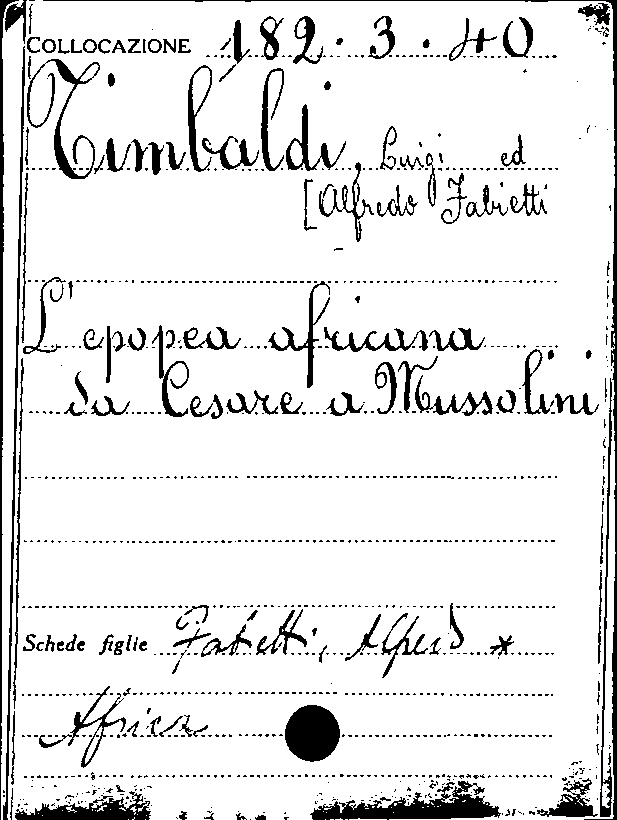 COLLOCAZIONE 182.3.40
Timbaldi, Luigi ed
[Alfredo Fabietti
L'epopea africana
da Cesare a Mussolini
Schede figlie Fabietti, Alfredo *
Africa